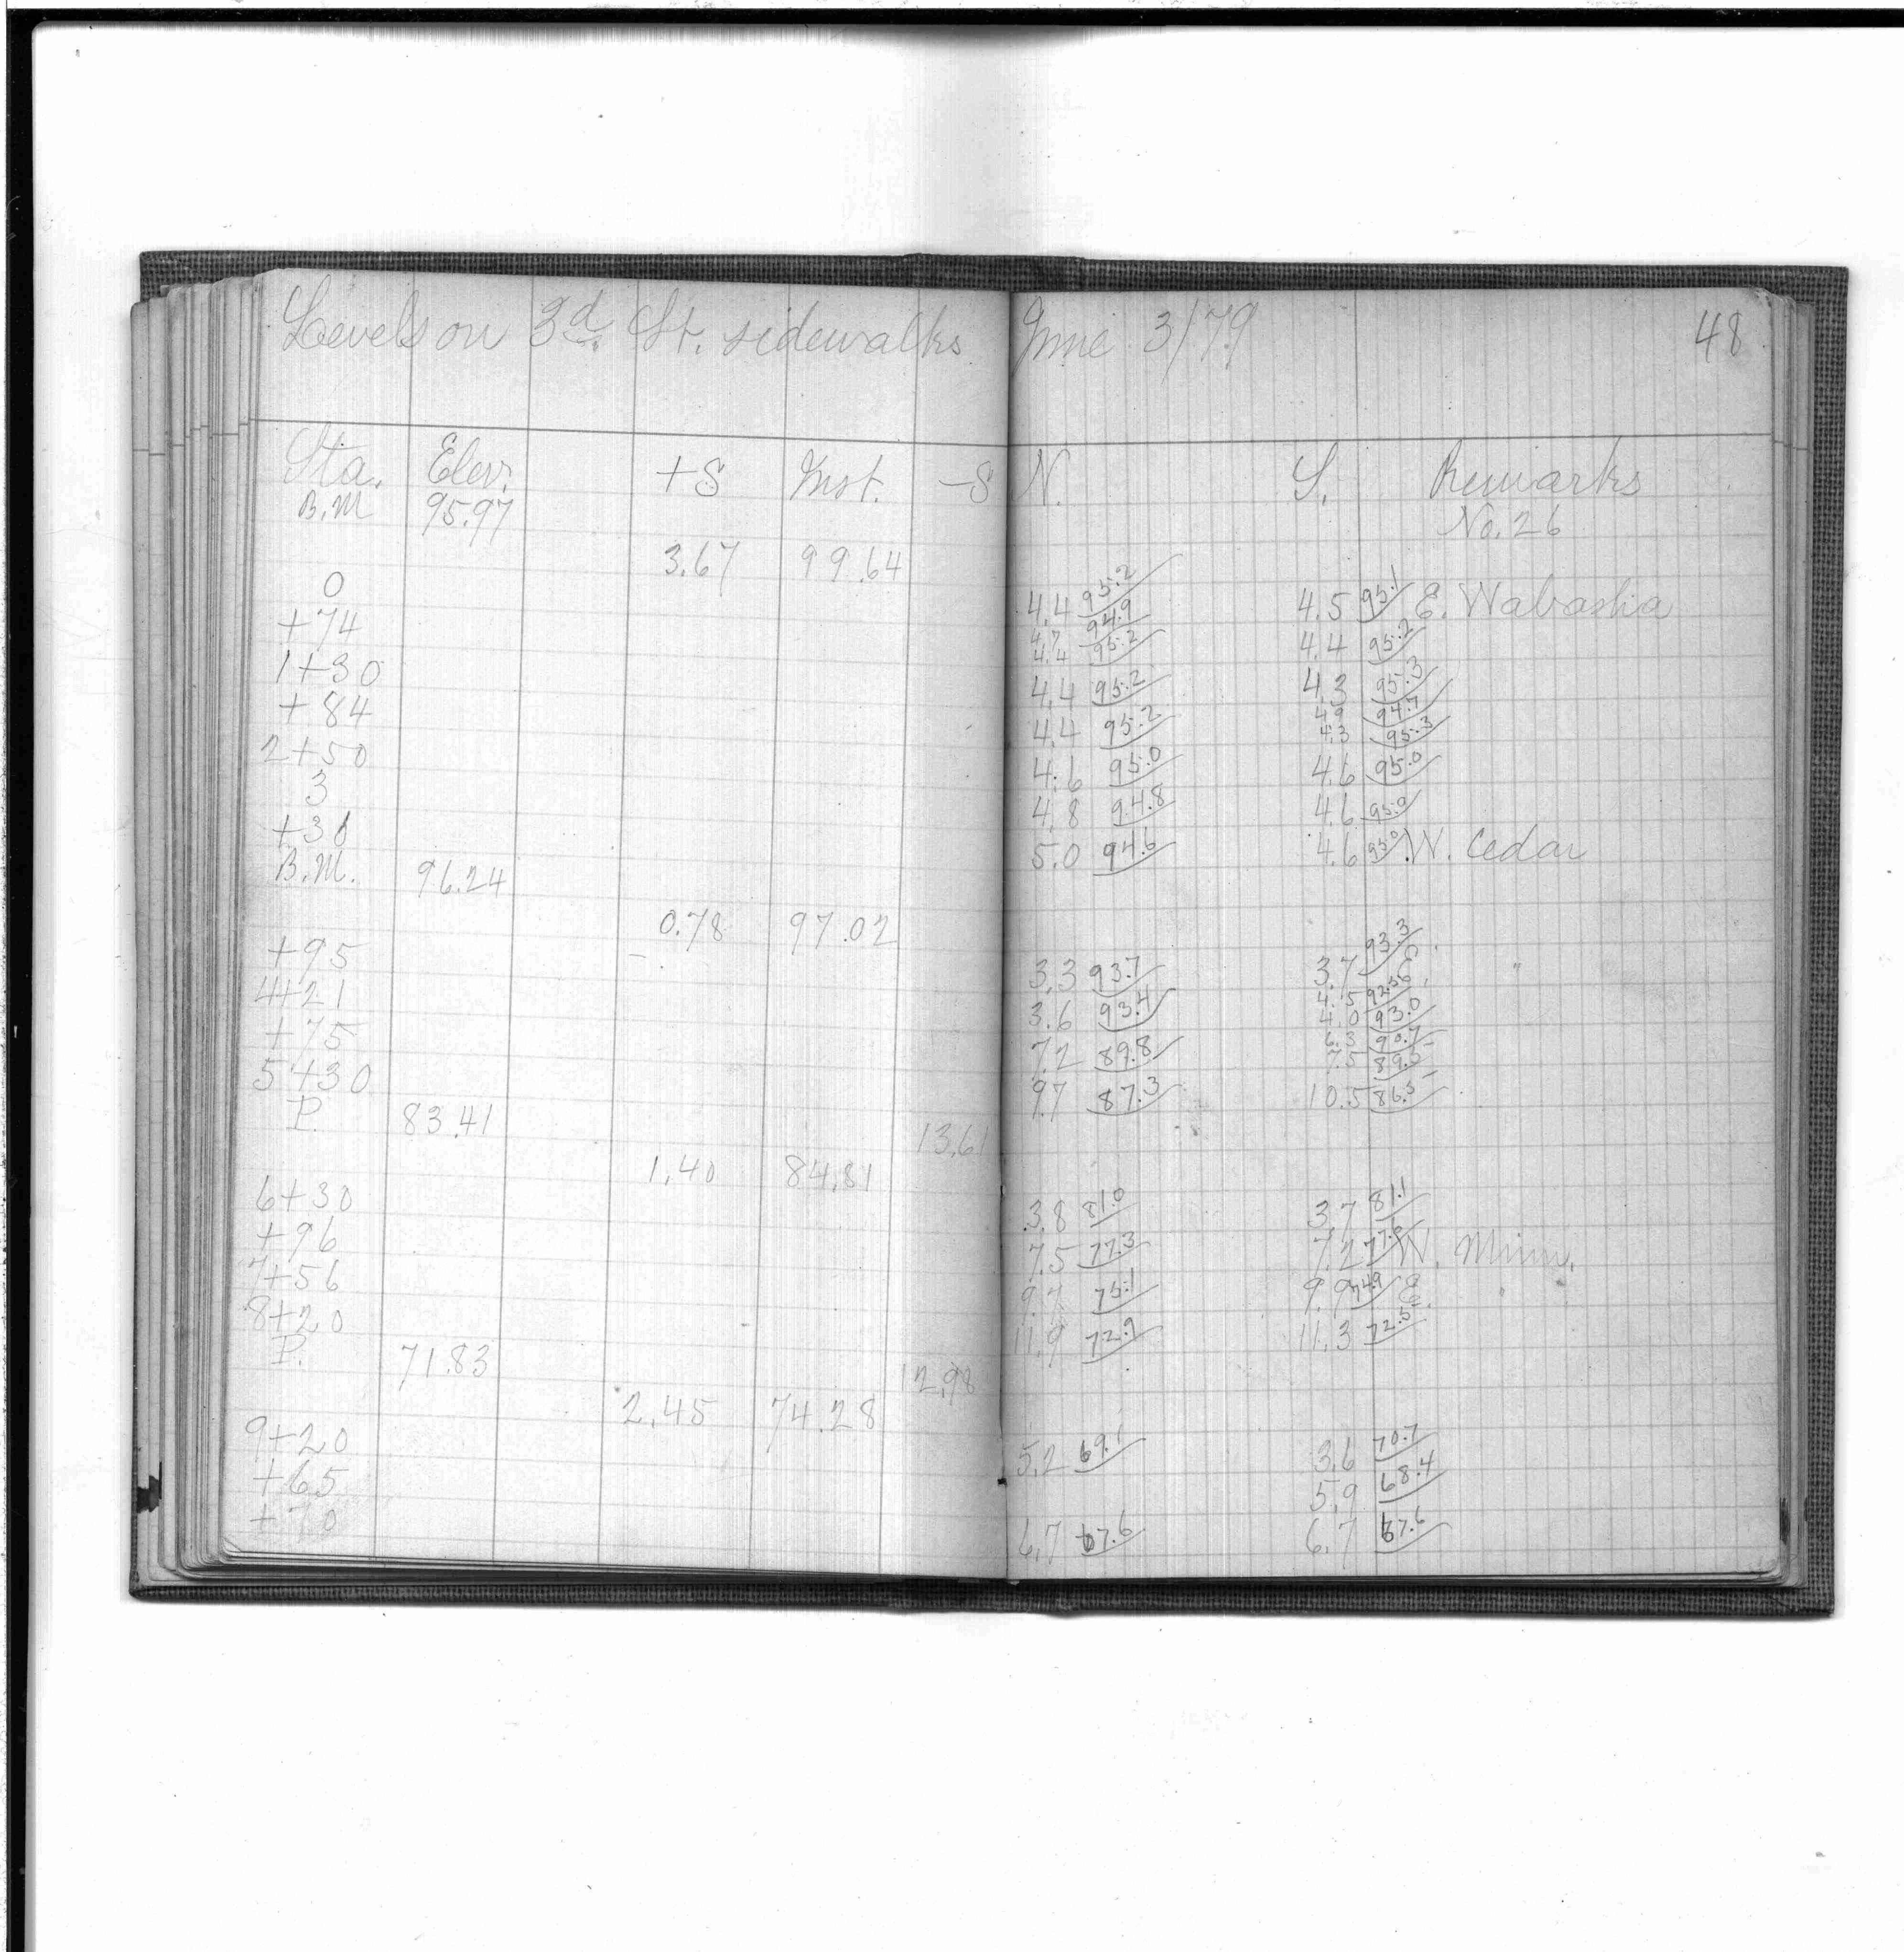 Levels on 3d. St. sidewalks June 3/79 48
Sta. Elev. +S Inst. -S N. S. Remarks
B.M 95.97 No. 26
3.67 99.64
0 4.4 95.2 4.5 95.1 E. Wabasha
+74 4.7 94.9 4.4 95.2 4.4 95.2
1+30 4.4 95.2 4.3 95.3
+84 4.4 95.2 4.9 94.7 4.3 95.3
2+50 4.6 95.0 4.6 95.0
3 4.8 94.8 4.6 95.0
+36 5.0 94.6 4.6 95.0 W. Cedar
B.M. 96.24
0.78 97.02
+95 3.3 93.7 3.7 93.3 E. "
4+21 3.6 93.4 4.5 92.5 4.0 93.0
+75 7.2 89.8 6.3 90.7 7.5 89.5
5+30 9.7 87.3 10.5 86.5
P. 83.41 13.61
1.40 84.81
6+30 3.8 81.0 3.7 81.1
+96 7.5 77.3 7.2 77.6 W. Minn.
7+56 9.7 75.1 9.9 74.9 E. "
8+20 11.9 72.9 11.3 72.5
P. 71.83 12.98
2.45 74.28
9+20 5.2 69.1 3.6 70.7
+65 5.9 68.4
+70 6.7 67.6 6.7 67.6